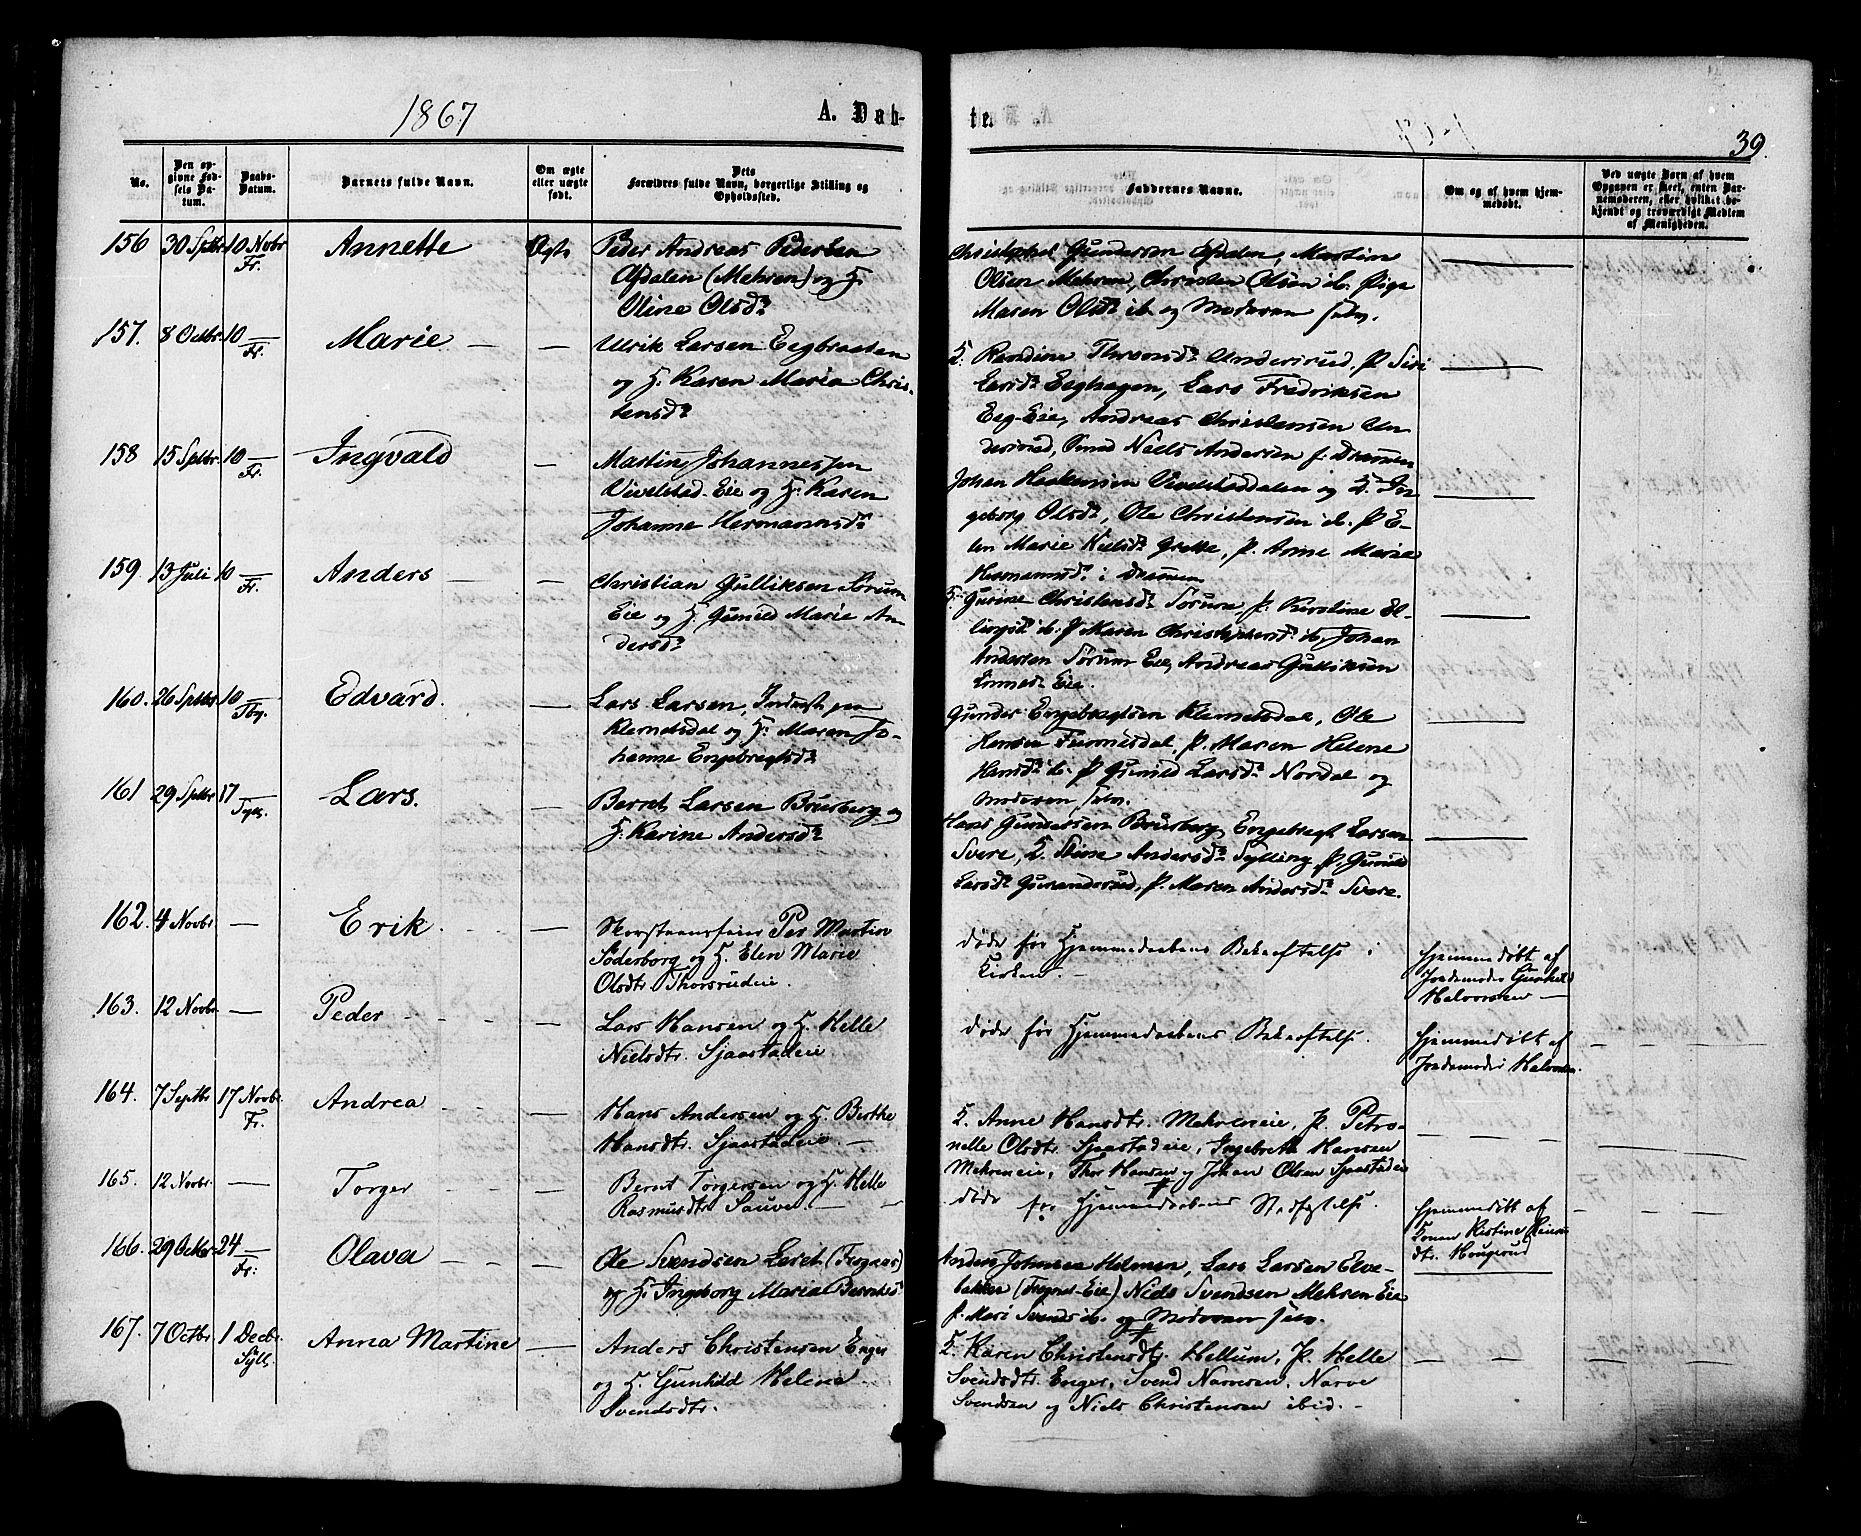 1867
A. Døb-
te.
39.
No.
Den opgivne Fødsels Datum.
Daabs-Datum.
Barnets fulde Navn.
Om ægte eller uægte født.
Dets Forældres fulde Navn, borgerlige Stilling og Opholdssted.
Faddernes Navne.
Om og af hvem hjemmedøbt.
Ved uægte Børn af hvem Opgaven er skeet, enten Barnemoderen, eller hvilket bekjendt og troværdigt Medlem af Menigheden.
156 30 Septbr 10 Novbr Fr. Annette Ægte
Peder Andreas Pedersen
Afdalen (Mehren) og H.
Oline Olsdr
Christopher Gundersen Afdalen, Martin
Olsen Mehren, Christen Olsen ib. Pige
Maren Olsdr ib og Moderen selv.
157. 8 Octbr. 10 Fr. Marie
Ulrik Larsen Eegbraaten
og H. Karen Maria Chris-
tensdr
K. Randine Thronsdr Undersrud, P. Siri
Larsdr Eeghagen, Lars Fredriksen
Eeg-Eie, Andreas Christensen Un-
dersrud, Smed Niels Andersen f. Drammen
158 15 Septbr. 10 Fr. Ingvald
Martin Johannessen
Vivelstad-Eie og H. Karen
Johanne Hermannsdr
Johan Haakensen Vivelstaddalen og K. In-
geborg Olsdr, Ole Christensen ib. P. E-
len Marie Kielsdr Grette, P. Anne Marie
Hermannsdr i Drammen
159 13 Juli 10 Fr. Anders
Christian Gulliksen Sørum
Eie og H. Gunild Marie An-
dersdr
K. Gurine Christensdr Sørum, P. Karoline El-
lingsdr ib. P. Maren Christophersdr ib, Johan
Andersen Sørum Eie, Andreas Gulliksen
Linnes Eie.
160. 26 Septbr 10 Edvard.
Lars Larsen, Inderst paa
Klemetsdal og H. Maren Jo-
hanne Engebragtsdr
Gunder Engebragtsen Klemetsdal, Ole
Hansen Furunesdal, P. Maren Helene
Hansdr ib. P. Gunild Larsdr Nordal og
Moderen selv.
161 29 Septbr 17 Sylt. Lars.
Bernt Larsen Bruserberg og
H. Karine Andersdr
Hans Gundersen Bruserberg, Engebragt Larsen
Svere, K. Stine Andersdr Sylling, P. Gunild
Larsdr Gunnerud, P. Maren Andersdr Svere.
162 4 Novbr — Erik
Skorsteensfeier Per Martin
Söderborg og H. Elen Marie
Olsdtr Thorsrudeie.
døde før Hjemmedaabens Bekræftelse i
Kirken. —
Hjemmedøbt af
Jordemoder Gunhild
Halvorsen —
163. 12 Novbr. — Peder
Lars Hansen og H. Helle
Nielsdtr. Sjaastadeie
døde før Hjemmedaabens Bekræftelse.
Hjemmedøbt af
Jordemoder Halvorsen.
164. 7 Septbr 17 Novbr. Fr. Andrea
Hans Andersen og H. Berthe
Hansdtr. Sjaastadeie —
K. Anne Hansdtr. Mehreneie, P. Petro-
nelle Olsdtr. Sjaastadeie, Ingebreth Hansen
Mehreneie, Thor Hansen og Johan Olsen Sjaastadeie
165. 12 Novbr. — Torger
Bernt Torgersen og H. Helle
Rasmusdtr Sauve —
døde før Hjemmedaabens Stadfæstelse.
Hjemmedøbt af
Konen Kistine
dtr. Hougsrud
166. 29 Octbr. 24 Fr: Olava
Ole Svendsen Laret (Fregnes)
og H. Ingeborg Maria Berntsd.
Anders Johnsen Helmen, Lars Larsen Elve-
bakken (Fregnes-Eie) Niels Svendsen Mehren Eie
P. Mari Svendsd. ib. og Moderen selv.
167. 7 Octbr. 1 Decbr. Syll. Anna Martine
Anders Christensen Enger
og H. Gunhild Helene
Svendsdtr.
K. Karen Christensdtr. Hellum, P. Helle
Svendsdtr. Enger, Svend Narvesen, Narve
Svendsen og Niels Christensen ibid. —